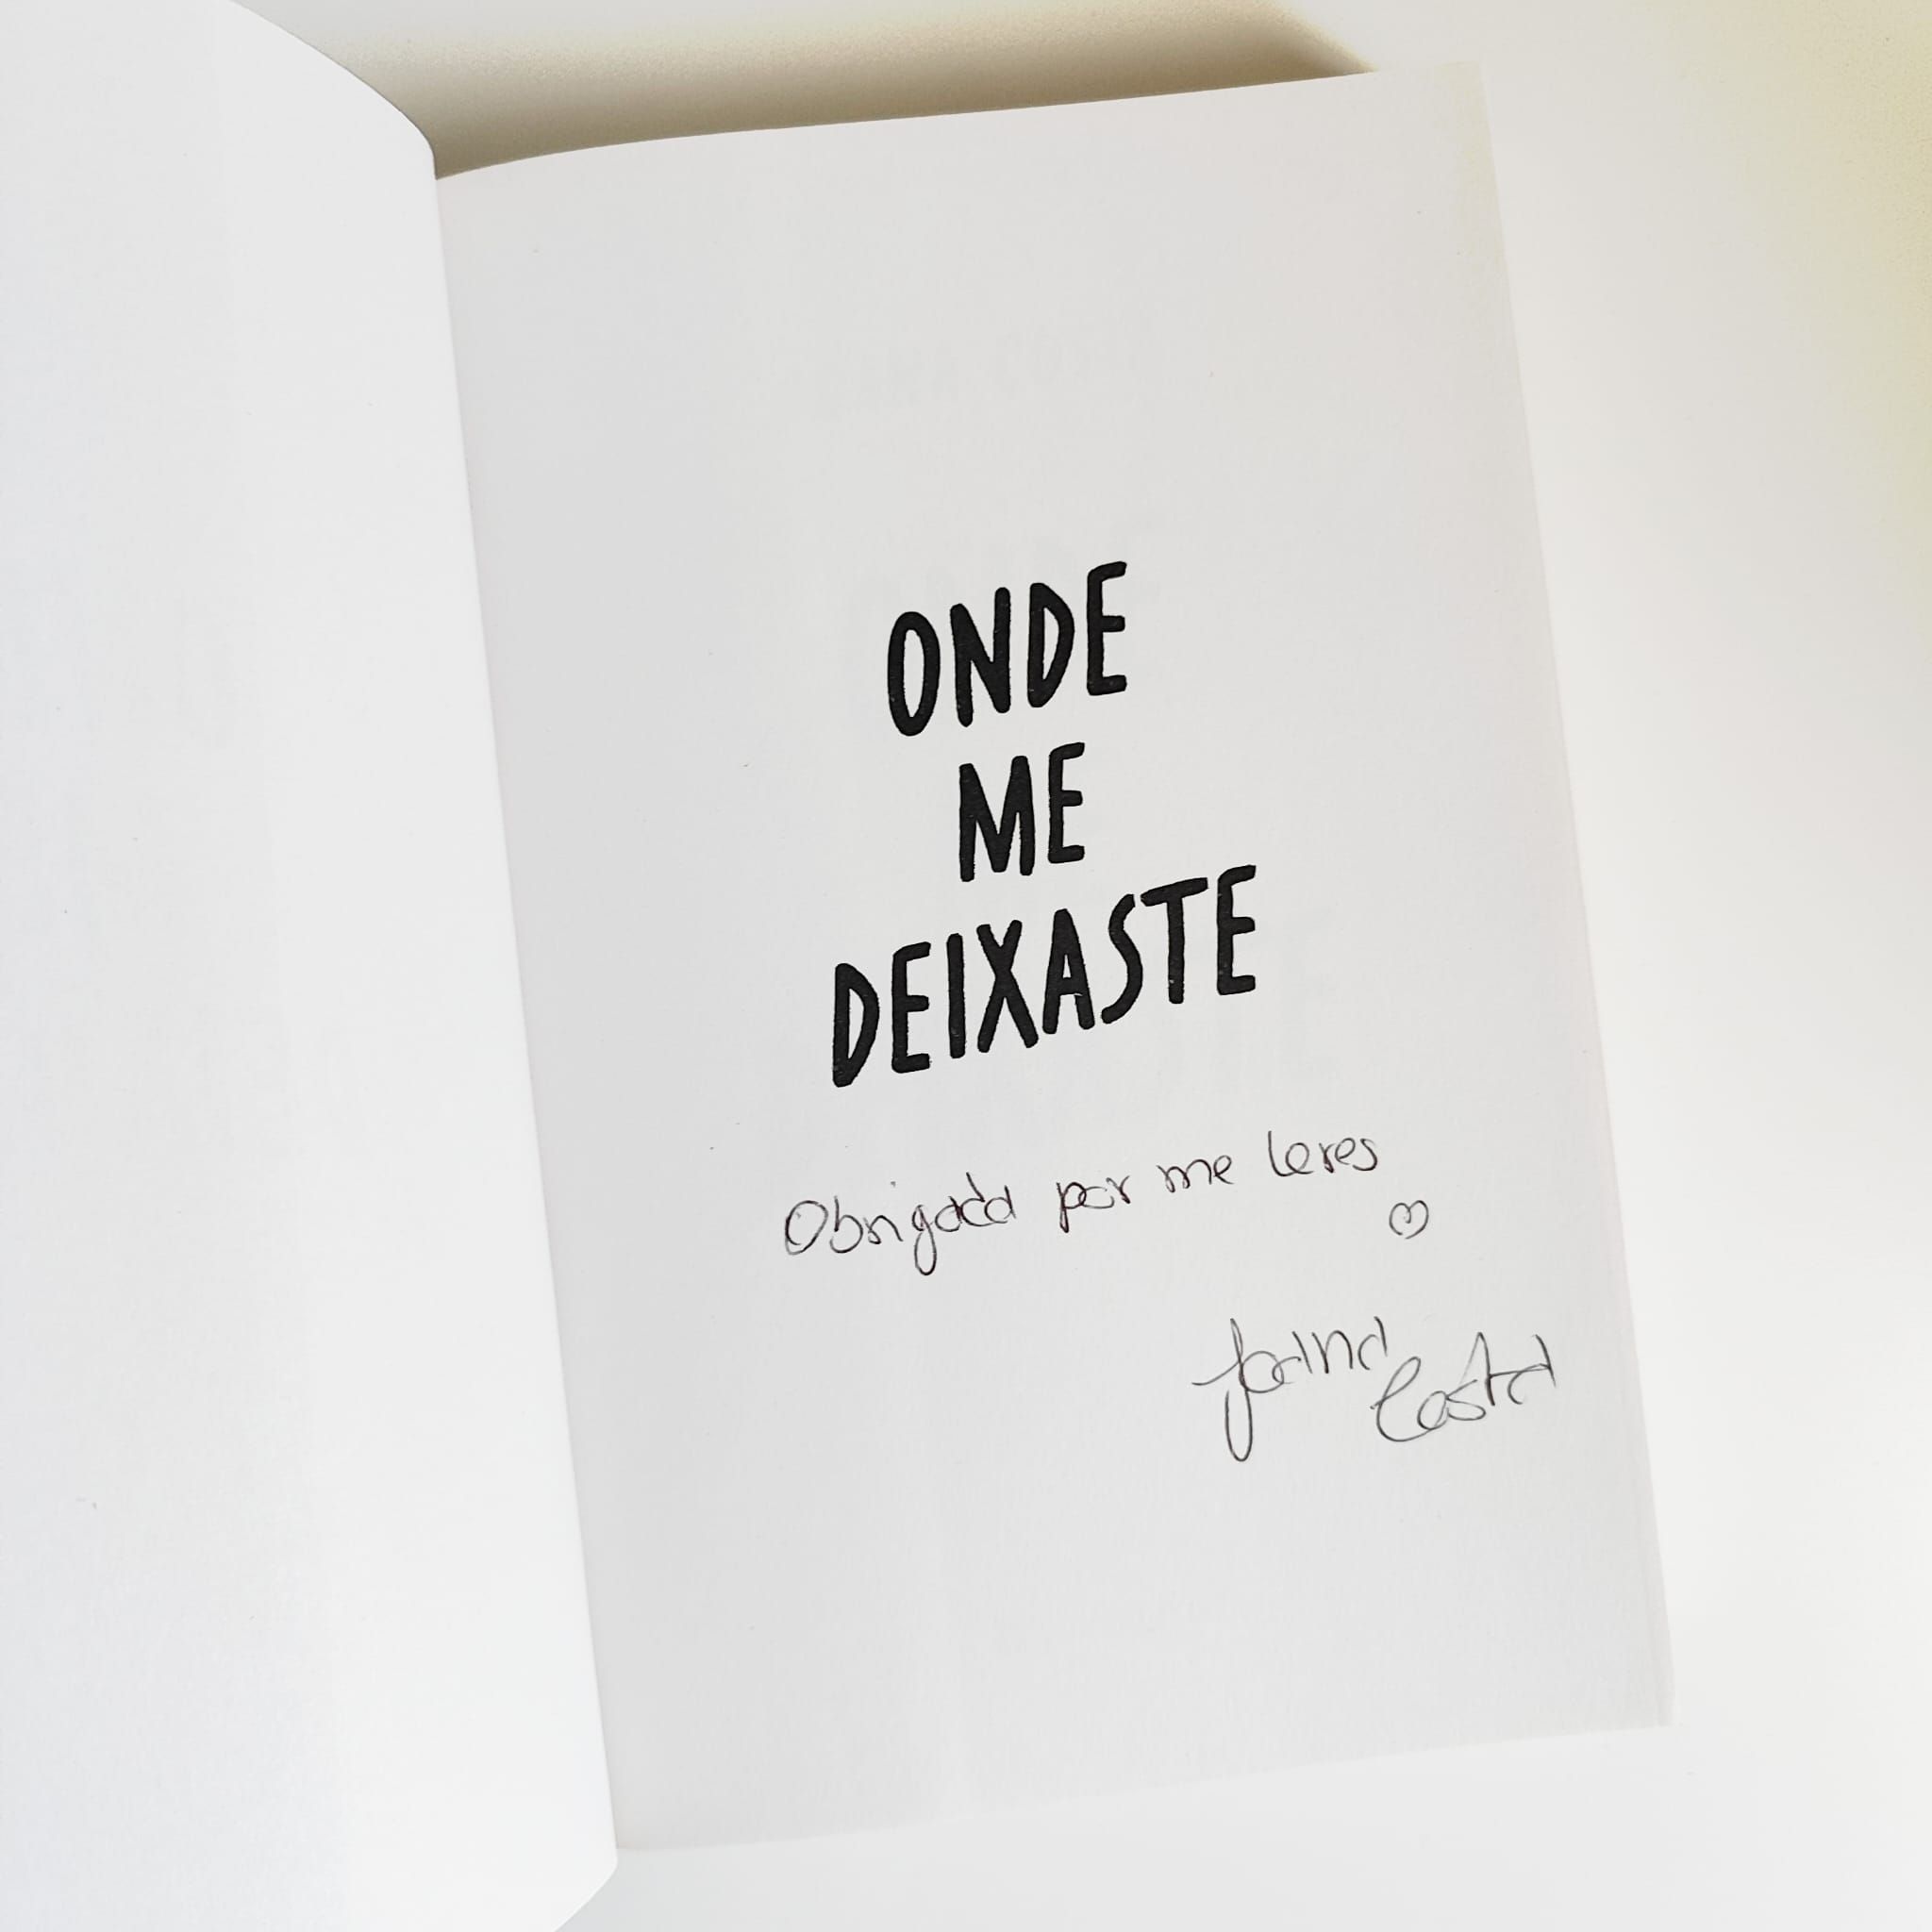 ONDE
ME
DEIXASTE
Obrigada por me leres
Joana
Costa